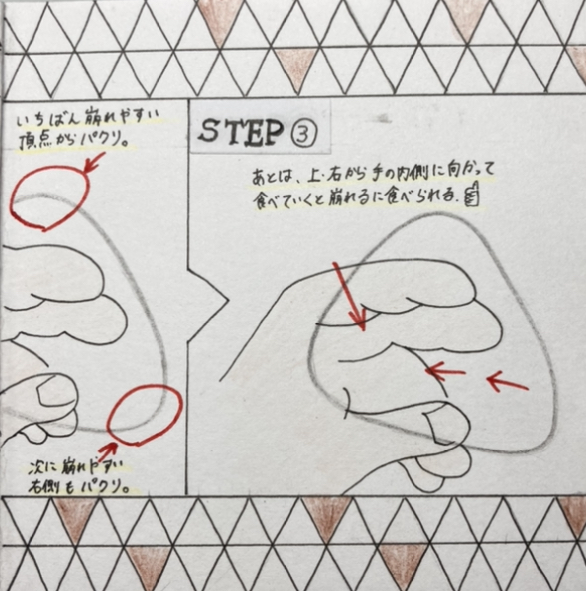 いちばん崩れやすい
頂点からパクリ。
次に崩れやすい
右側もパクリ。
STEP③
あとは、上・右から手の内側に向かって
食べていくと崩れるに食べられる。